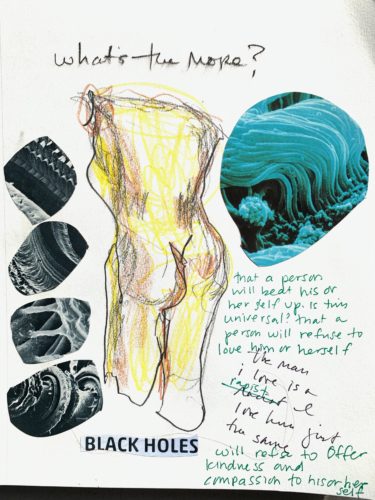 what's the more?
that a person
will beat his or
her self up. Is this
universal? that a
person will refuse to
love him or herself
The man
i love is a
I
love him just
the same
BLACK HOLES
will refuse to offer
kindness and
compassion to his or her
self